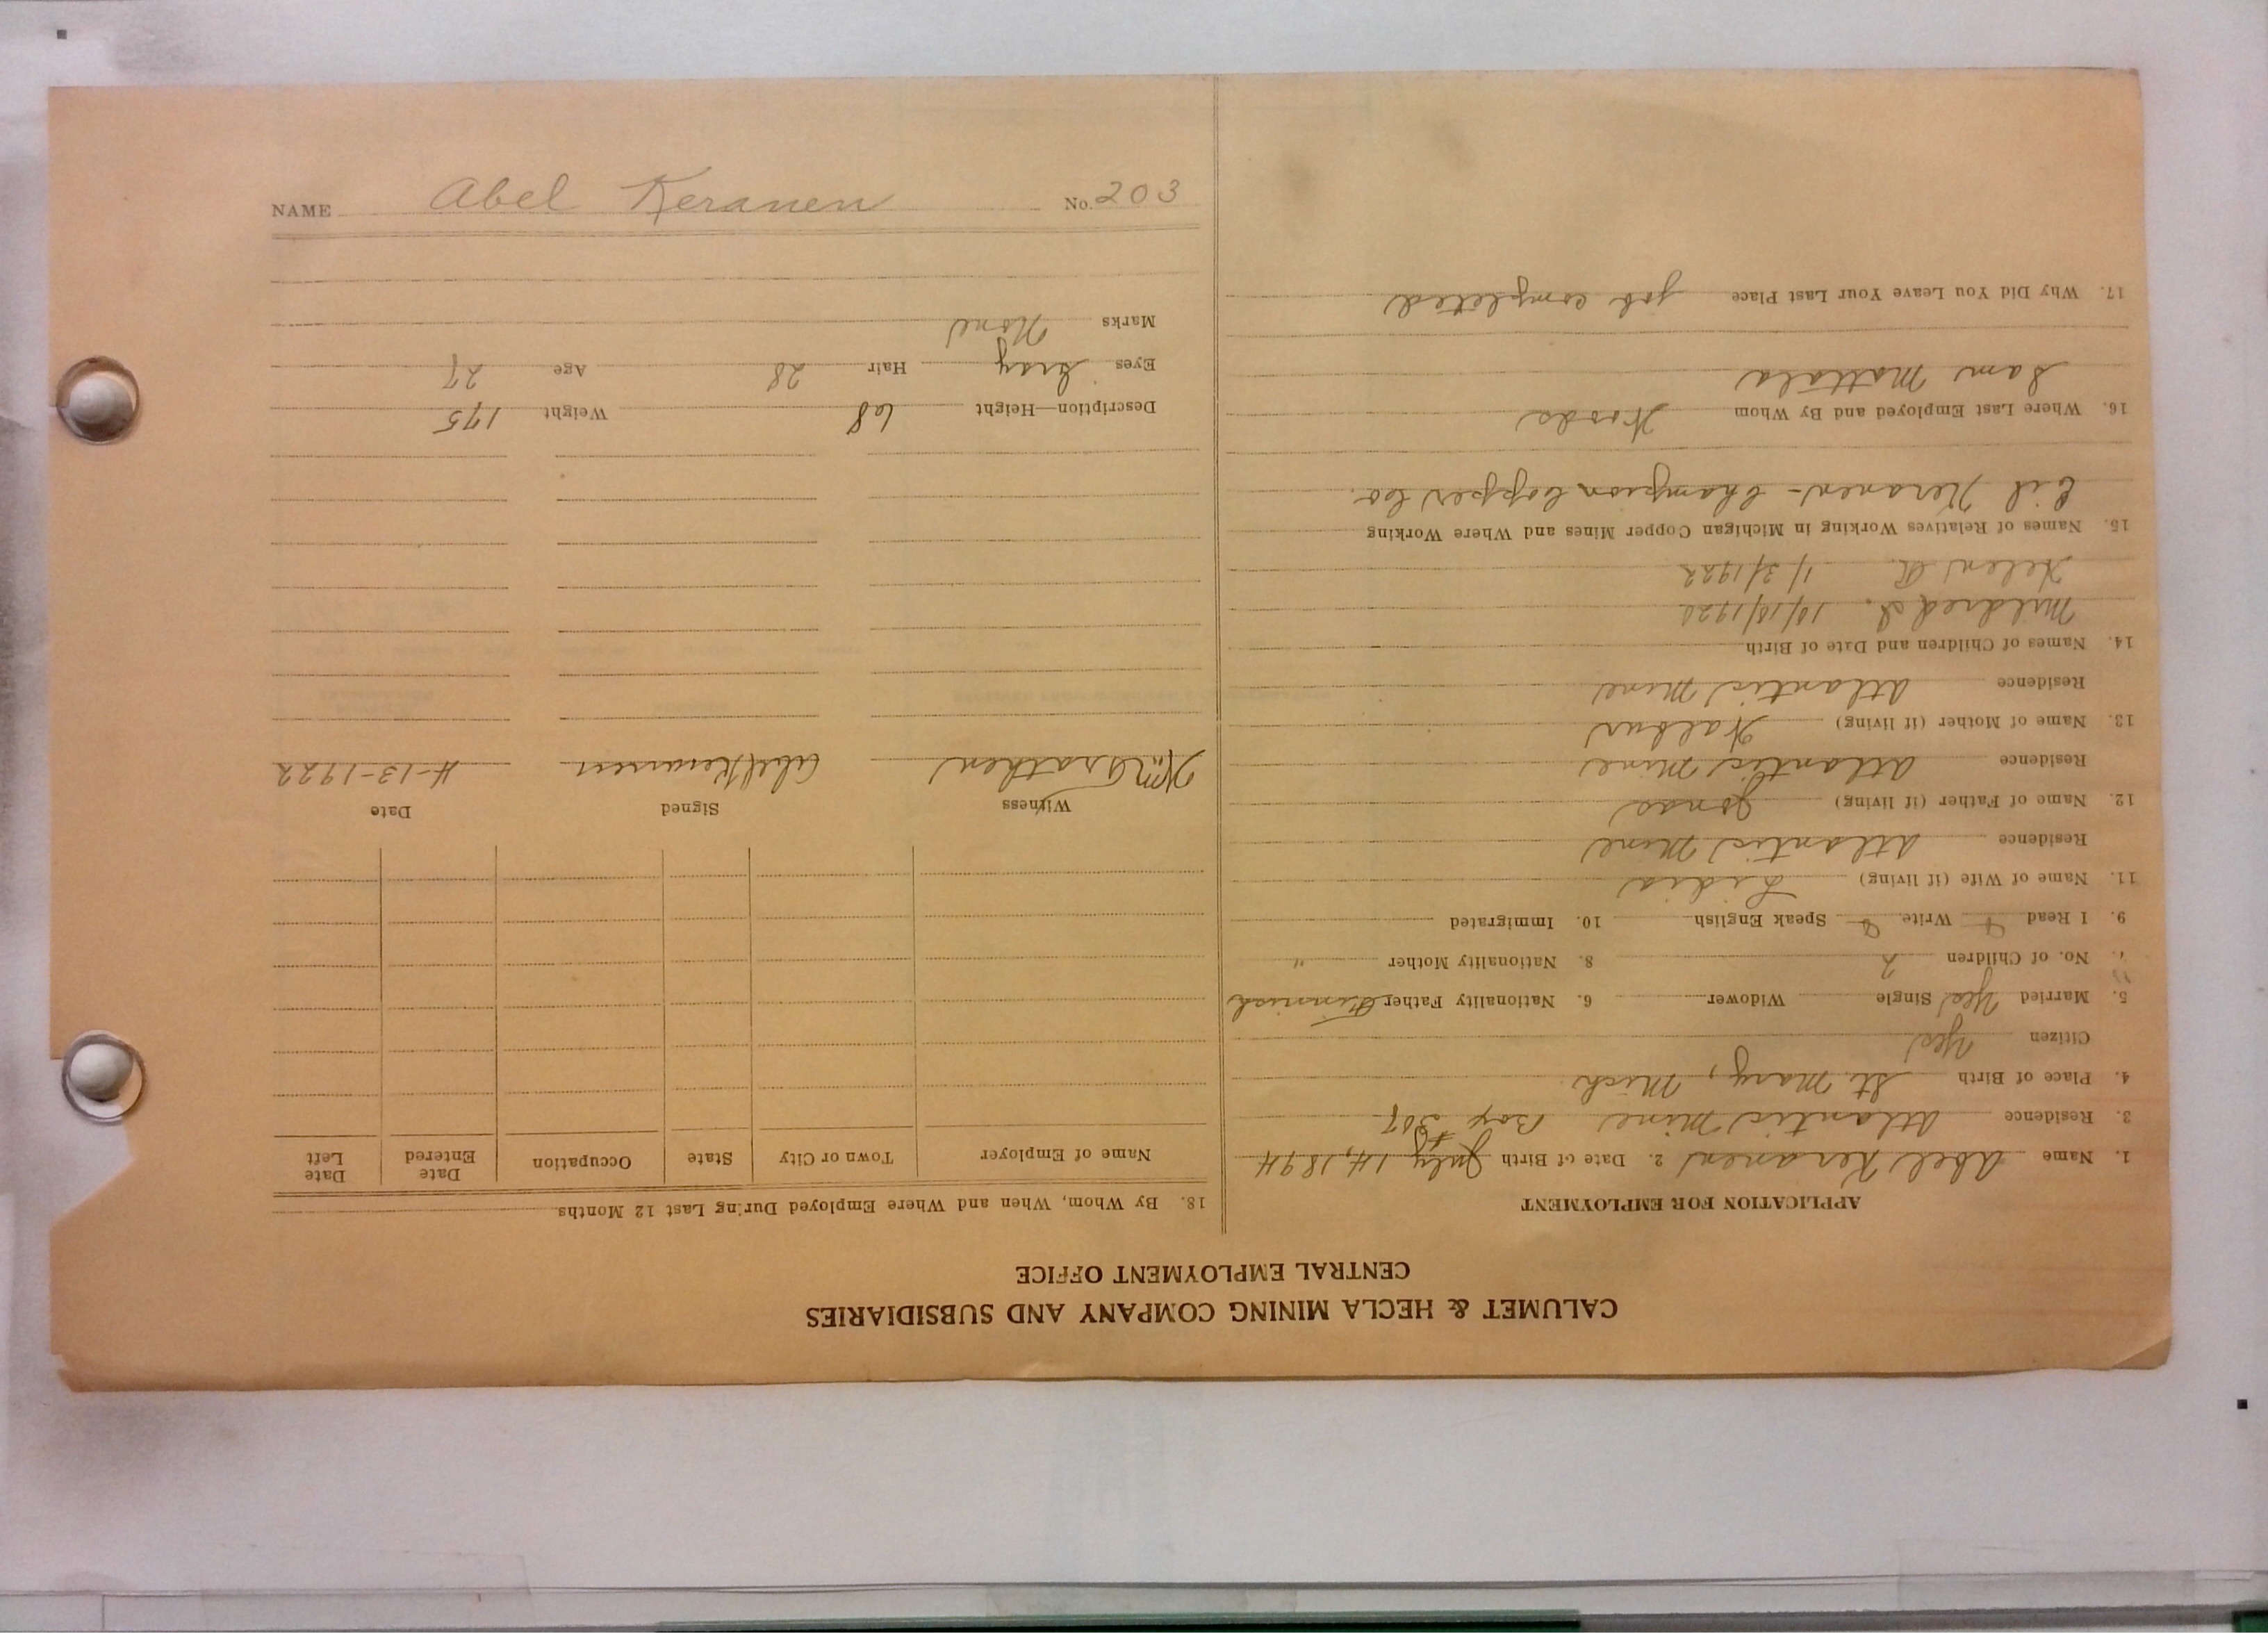 CALUMET & HECLA MINING COMPANY AND SUBSIDIARIES
CENTRAL EMPLOYMENT OFFICE
APPLICATION FOR EMPLOYMENT
1. Name Abel Keranen 2. Date of Birth July 14, 1894
3. Residence Atlantic Mine Box 307
4. Place of Birth St. Mary, Mich.
Citizen Yes
5. Married Yes Single Widower 6. Nationality Father Finnish
7. No. of Children 2 8. Nationality Mother "
9. I Read Write Speak English 10. Immigrated
11. Name of Wife (if living) Lidia
Residence Atlantic Mine
12. Name of Father (if living) Jonas
Residence Atlantic Mine
13. Name of Mother (if living)
Residence Atlantic Mine
14. Names of Children and Date of Birth
Mildred I. 10/10/1920
Helen R. 1/3/1922
15. Names of Relatives Working in Michigan Copper Mines and Where Working
Eil Keranen - Champion Copper Co.
16. Where Last Employed and By Whom Woods
Sam Mattala
17. Why Did You Leave Your Last Place job completed
18. By Whom, When and Where Employed During Last 12 Months
Name of Employer Town or City State Occupation Date Entered Date Left
Witness Signed Date
Abel Keranen 4-13-1922
Description—Height 68 Weight 175
Eyes Gray Hair 28 Age 27
Marks None
NAME Abel Keranen No. 203